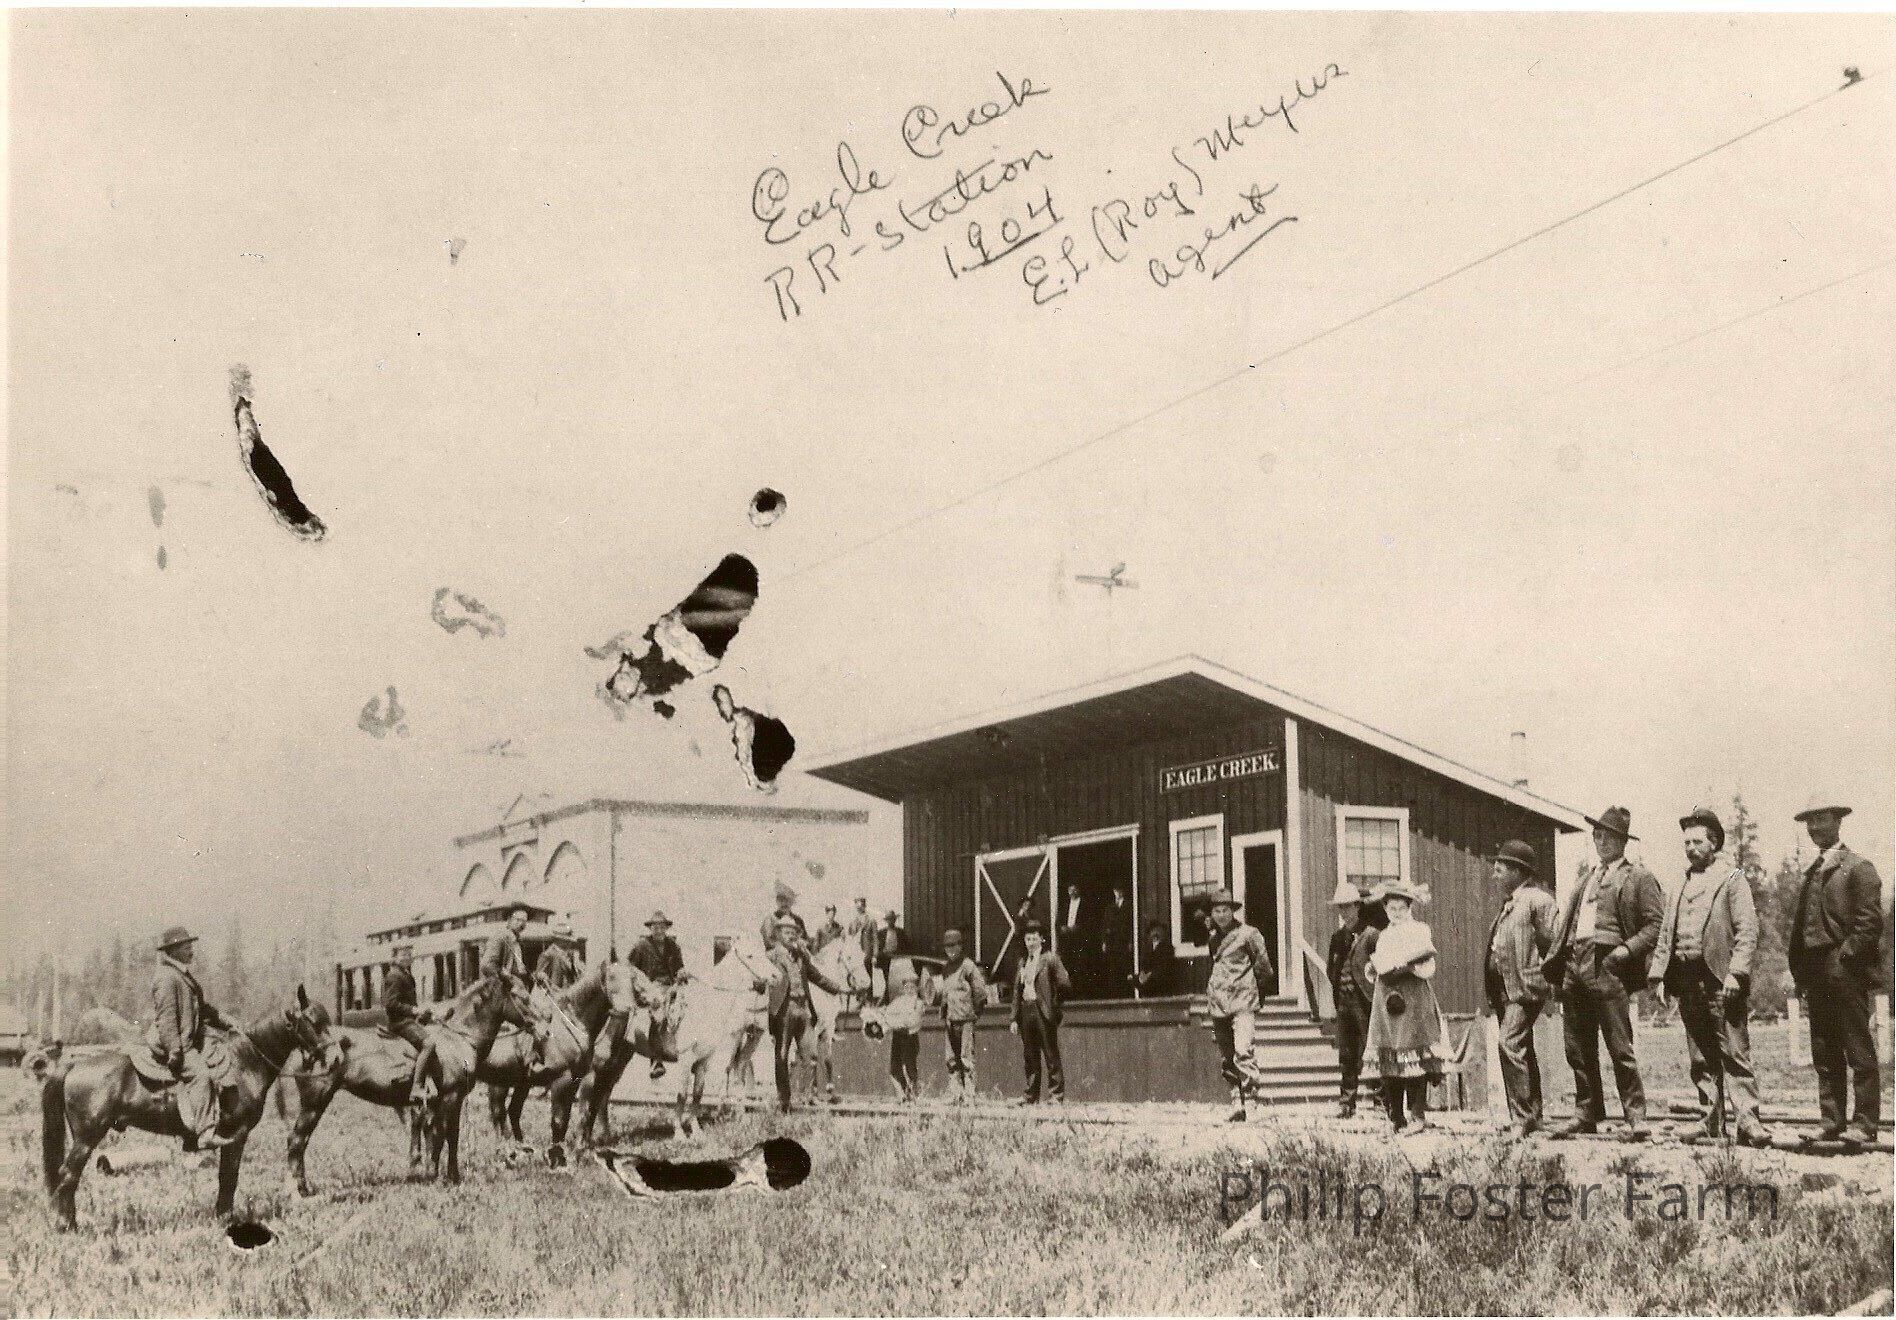 Eagle Creek
RR-Station
1904
E.L (Roy) Meyers
agent
EAGLE CREEK.
Philip Foster Farm